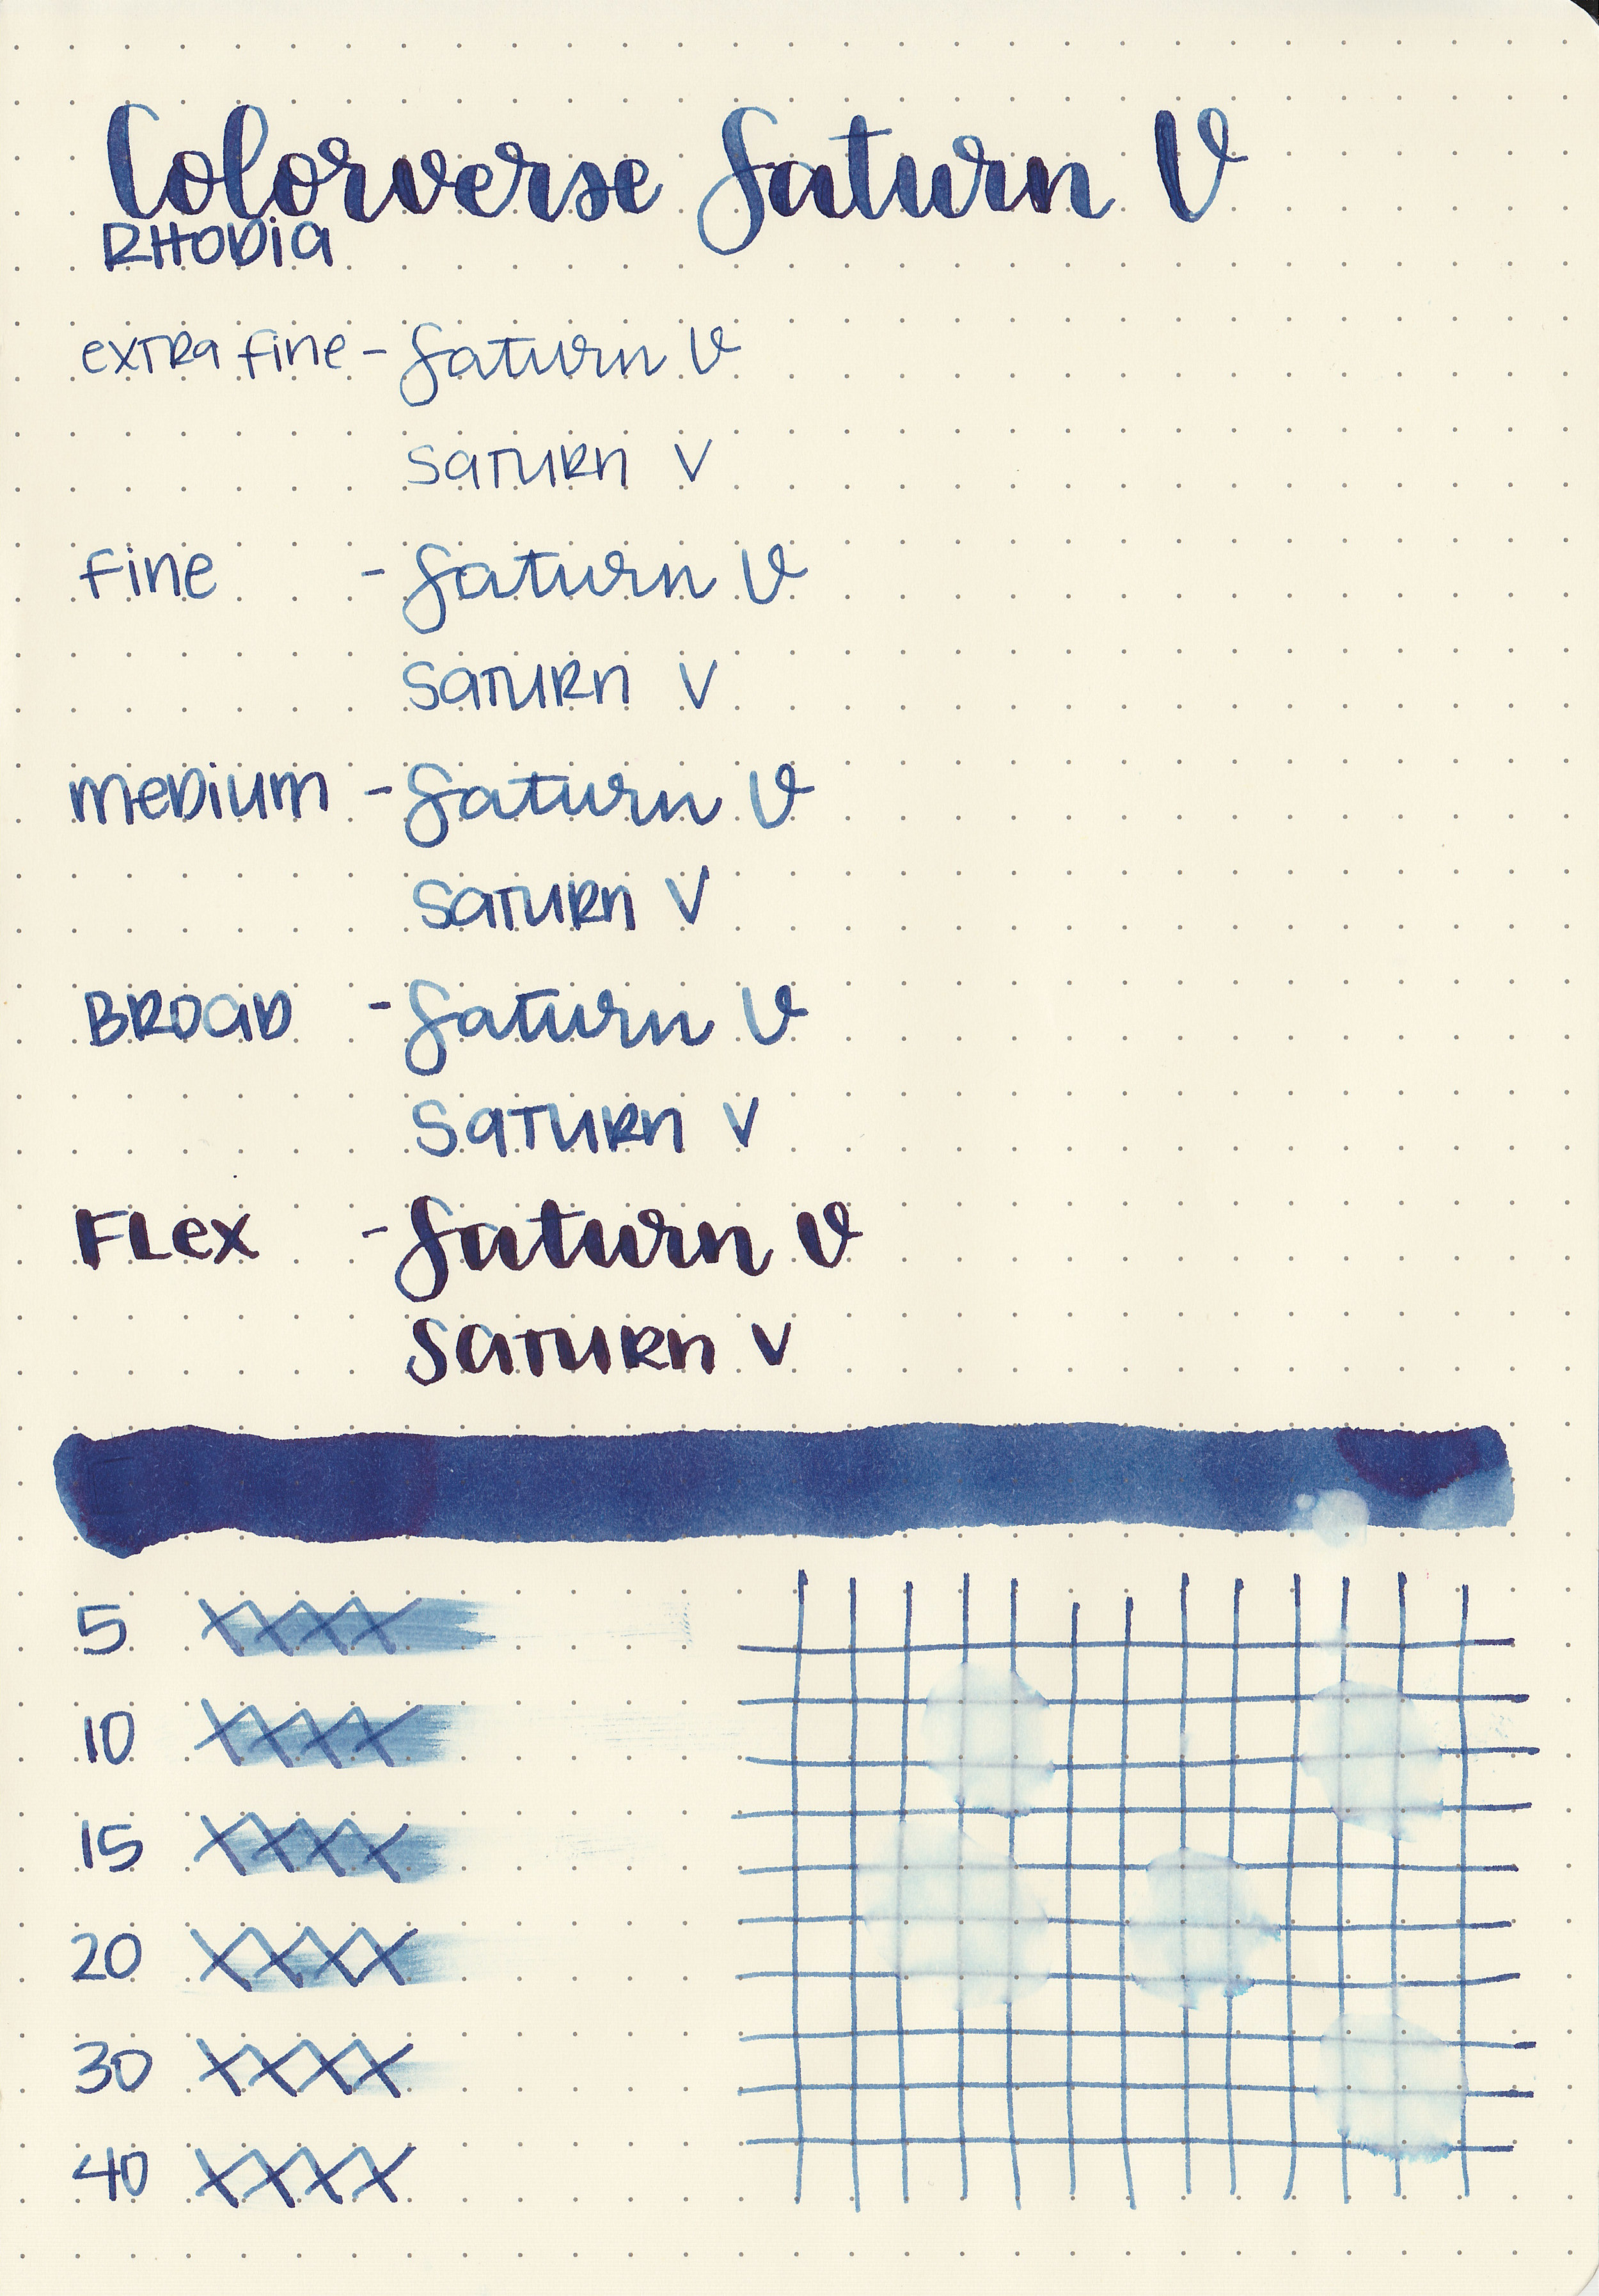 Colorverse Saturn V
RHODIA
extra fine - Saturn V
Saturn V
Fine - Saturn V
Saturn V
medium - Saturn V
Saturn V
BROAD - Saturn V
Saturn V
FLex - Saturn V
Saturn V
5 XXXX
10 XXXX
15 XXXX
20 XXXX
30 XXXX
40 XXXX